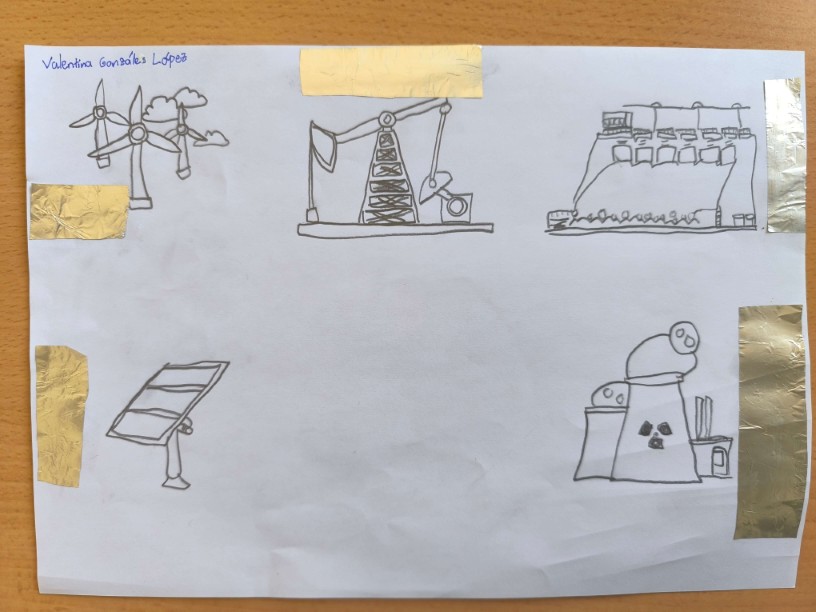 Valentina Gonzáles López